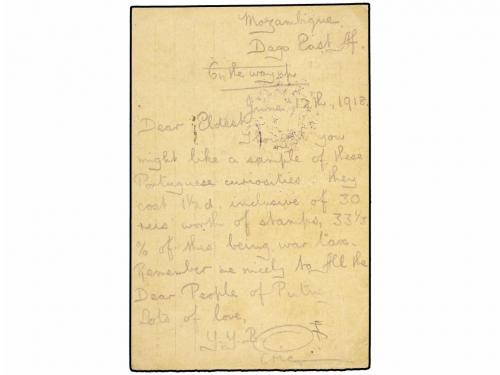 Mozambique.
Dago East Af.
On the way up
June 12th, 1918.
Dear Eldest,
I thought you
might like a sample of these
Portuguese curiosities: they
cost 1½d. inclusive of 30
reis worth of stamps, 33⅓
% of this being war tax.
Remember me nicely to All the
Dear People of
Lots of love,
Y.Y.B.